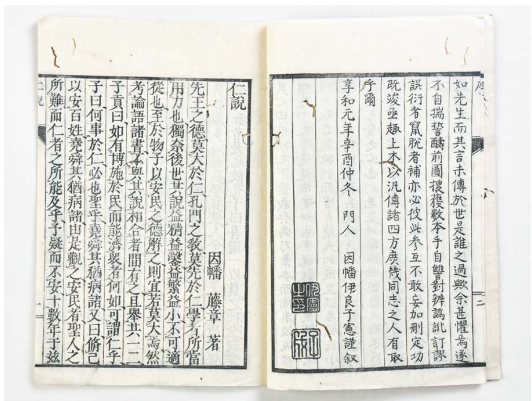 序
如先生而其言未傳於世是誰之過歟余甚懼焉遂
不自揣誓醻前圖捜獲數本手自讐對辨譌訂謬
誤衍者竄脫者補亦必彼此參互不敢妄加刪定功
既竣亟趣上木以汎傳諸四方庶幾同志之人有取
乎爾
享和元年辛酉仲冬　門人　因幡伊良子憲謹叙
二
仁說
因幡　藤章　著
先王之德莫大於仁孔門之敎莫先於仁學者所當
用力也獨奈後世其說益精益鑿益繁益小不可適
從也至於物子以安民之德解之則宜若莫大焉然
考論語諸書與其說相合者間有之且舉其一二
子貢曰如有博施於民而能濟衆者何如可謂仁乎
子曰何事於仁必也聖乎堯舜其猶病諸又曰脩己
以安百姓堯舜其猶病諸由是觀之安民者聖人之
所難而仁者之所能及乎予疑而不安十數年于玆
仁說
一